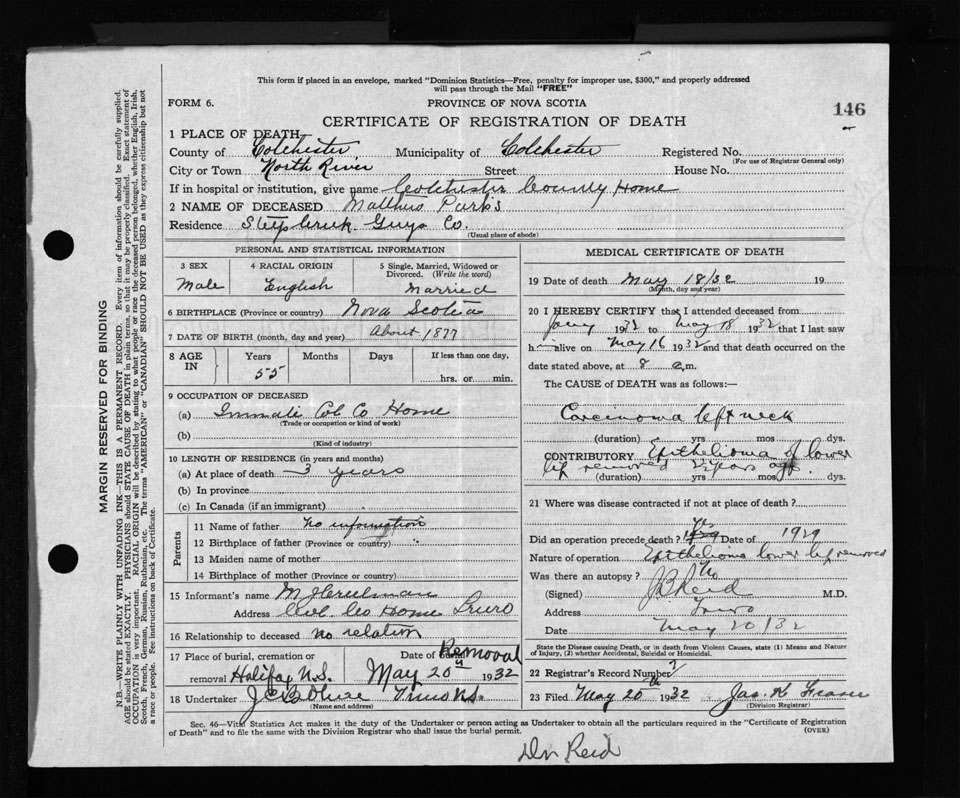 This form if placed in an envelope, marked "Dominion Statistics—Free, penalty for improper use, $300," and properly addressed
will pass through the Mail "FREE"
FORM 6.
PROVINCE OF NOVA SCOTIA
146
CERTIFICATE OF REGISTRATION OF DEATH
1 PLACE OF DEATH
County of Colchester Municipality of Colchester Registered No.
(For use of Registrar General only)
City or Town North River Street House No.
If in hospital or institution, give name Colchester County Home
2 NAME OF DECEASED Parks
Residence Guys Co.
(Usual place of abode)
PERSONAL AND STATISTICAL INFORMATION
3 SEX
Male
4 RACIAL ORIGIN
English
5 Single, Married, Widowed or
Divorced. (Write the word)
Married
6 BIRTHPLACE (Province or country) Nova Scotia
7 DATE OF BIRTH (month, day and year) About 1877
8 AGE IN
Years Months Days If less than one day,
55 hrs. or min.
9 OCCUPATION OF DECEASED
(a) Inmate Col Co Home
(Trade or occupation or kind of work)
(b)
(Kind of industry)
10 LENGTH OF RESIDENCE (in years and months)
(a) At place of death 3 years
(b) In province
(c) In Canada (if an immigrant)
Parents
11 Name of father no information
12 Birthplace of father (Province or country)
13 Maiden name of mother
14 Birthplace of mother (Province or country)
15 Informant's name
Address Col. Co Home Truro
16 Relationship to deceased no relation
17 Place of burial, cremation or Date of burial Removal
removal Halifax N.S. May 20 1932
18 Undertaker Truro N.S.
(Name and address)
MEDICAL CERTIFICATE OF DEATH
19 Date of death May 18/32 19
(Month, day and year)
20 I HEREBY CERTIFY that I attended deceased from
Jany 1932 to May 18 1932 that I last saw
h alive on May 16 1932 and that death occurred on the
date stated above, at 8 m.
The CAUSE of DEATH was as follows:
Carcinoma left neck
(duration) yrs mos dys.
CONTRIBUTORY Epithelioma of lower
lip removed years ago
(duration) yrs mos dys.
21 Where was disease contracted if not at place of death?
Did an operation precede death? yes Date of 1929
Nature of operation Epithelioma lower lip removed
Was there an autopsy? No
(Signed) J B Reid M.D.
Address Truro
Date May 20/32
State the Disease causing Death, or in death from Violent Causes, state (1) Means and Nature
of Injury, (2) whether Accidental, Suicidal or Homicidal.
22 Registrar's Record Number 7
23 Filed May 20th 1932 Jas. K Fraser
(Division Registrar)
Sec. 46—Vital Statistics Act makes it the duty of the Undertaker or person acting as Undertaker to obtain all the particulars required in the "Certificate of Registration
of Death" and to file the same with the Division Registrar who shall issue the burial permit.
(OVER)
Dr Reid
MARGIN RESERVED FOR BINDING
N.B.—WRITE PLAINLY WITH UNFADING INK—THIS IS A PERMANENT RECORD. Every item of information should be carefully supplied.
AGE should be stated EXACTLY. PHYSICIANS should STATE CAUSE OF DEATH in plain terms, so that it may be properly classified. Exact statement of
OCCUPATION is very important. RACIAL ORIGIN will be described by stating to what people or race the deceased person belonged, whether English, Irish,
Scotch, French, German, Russian, Ruthenian, etc. The terms "AMERICAN" or "CANADIAN" SHOULD NOT BE USED as they express citizenship but not
a race or people. See instructions on back of Certificate.